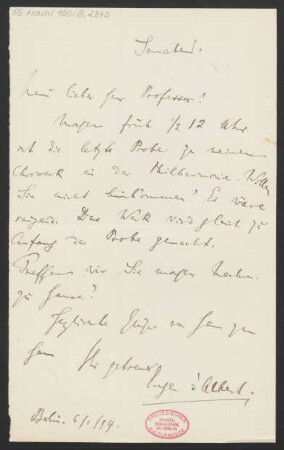 55 Nachl 100/B, 2840
Sonnabend.
Mein lieber Herr Professor!
Morgen früh ½ 12 Uhr
ist die letzte Probe zu meinem
Chorwerk in der Philharmonie. Wollen
Sie nicht hinkommen? Es wäre
reizend. Das Werk wird gleich zu
Anfang der Probe gemacht.
Treffen wir Sie morgen
zu Hause?
Herzliche Grüße von Haus zu
Haus Ihr getreuer
Eugen d'Albert.
Berlin. 6/1./94.